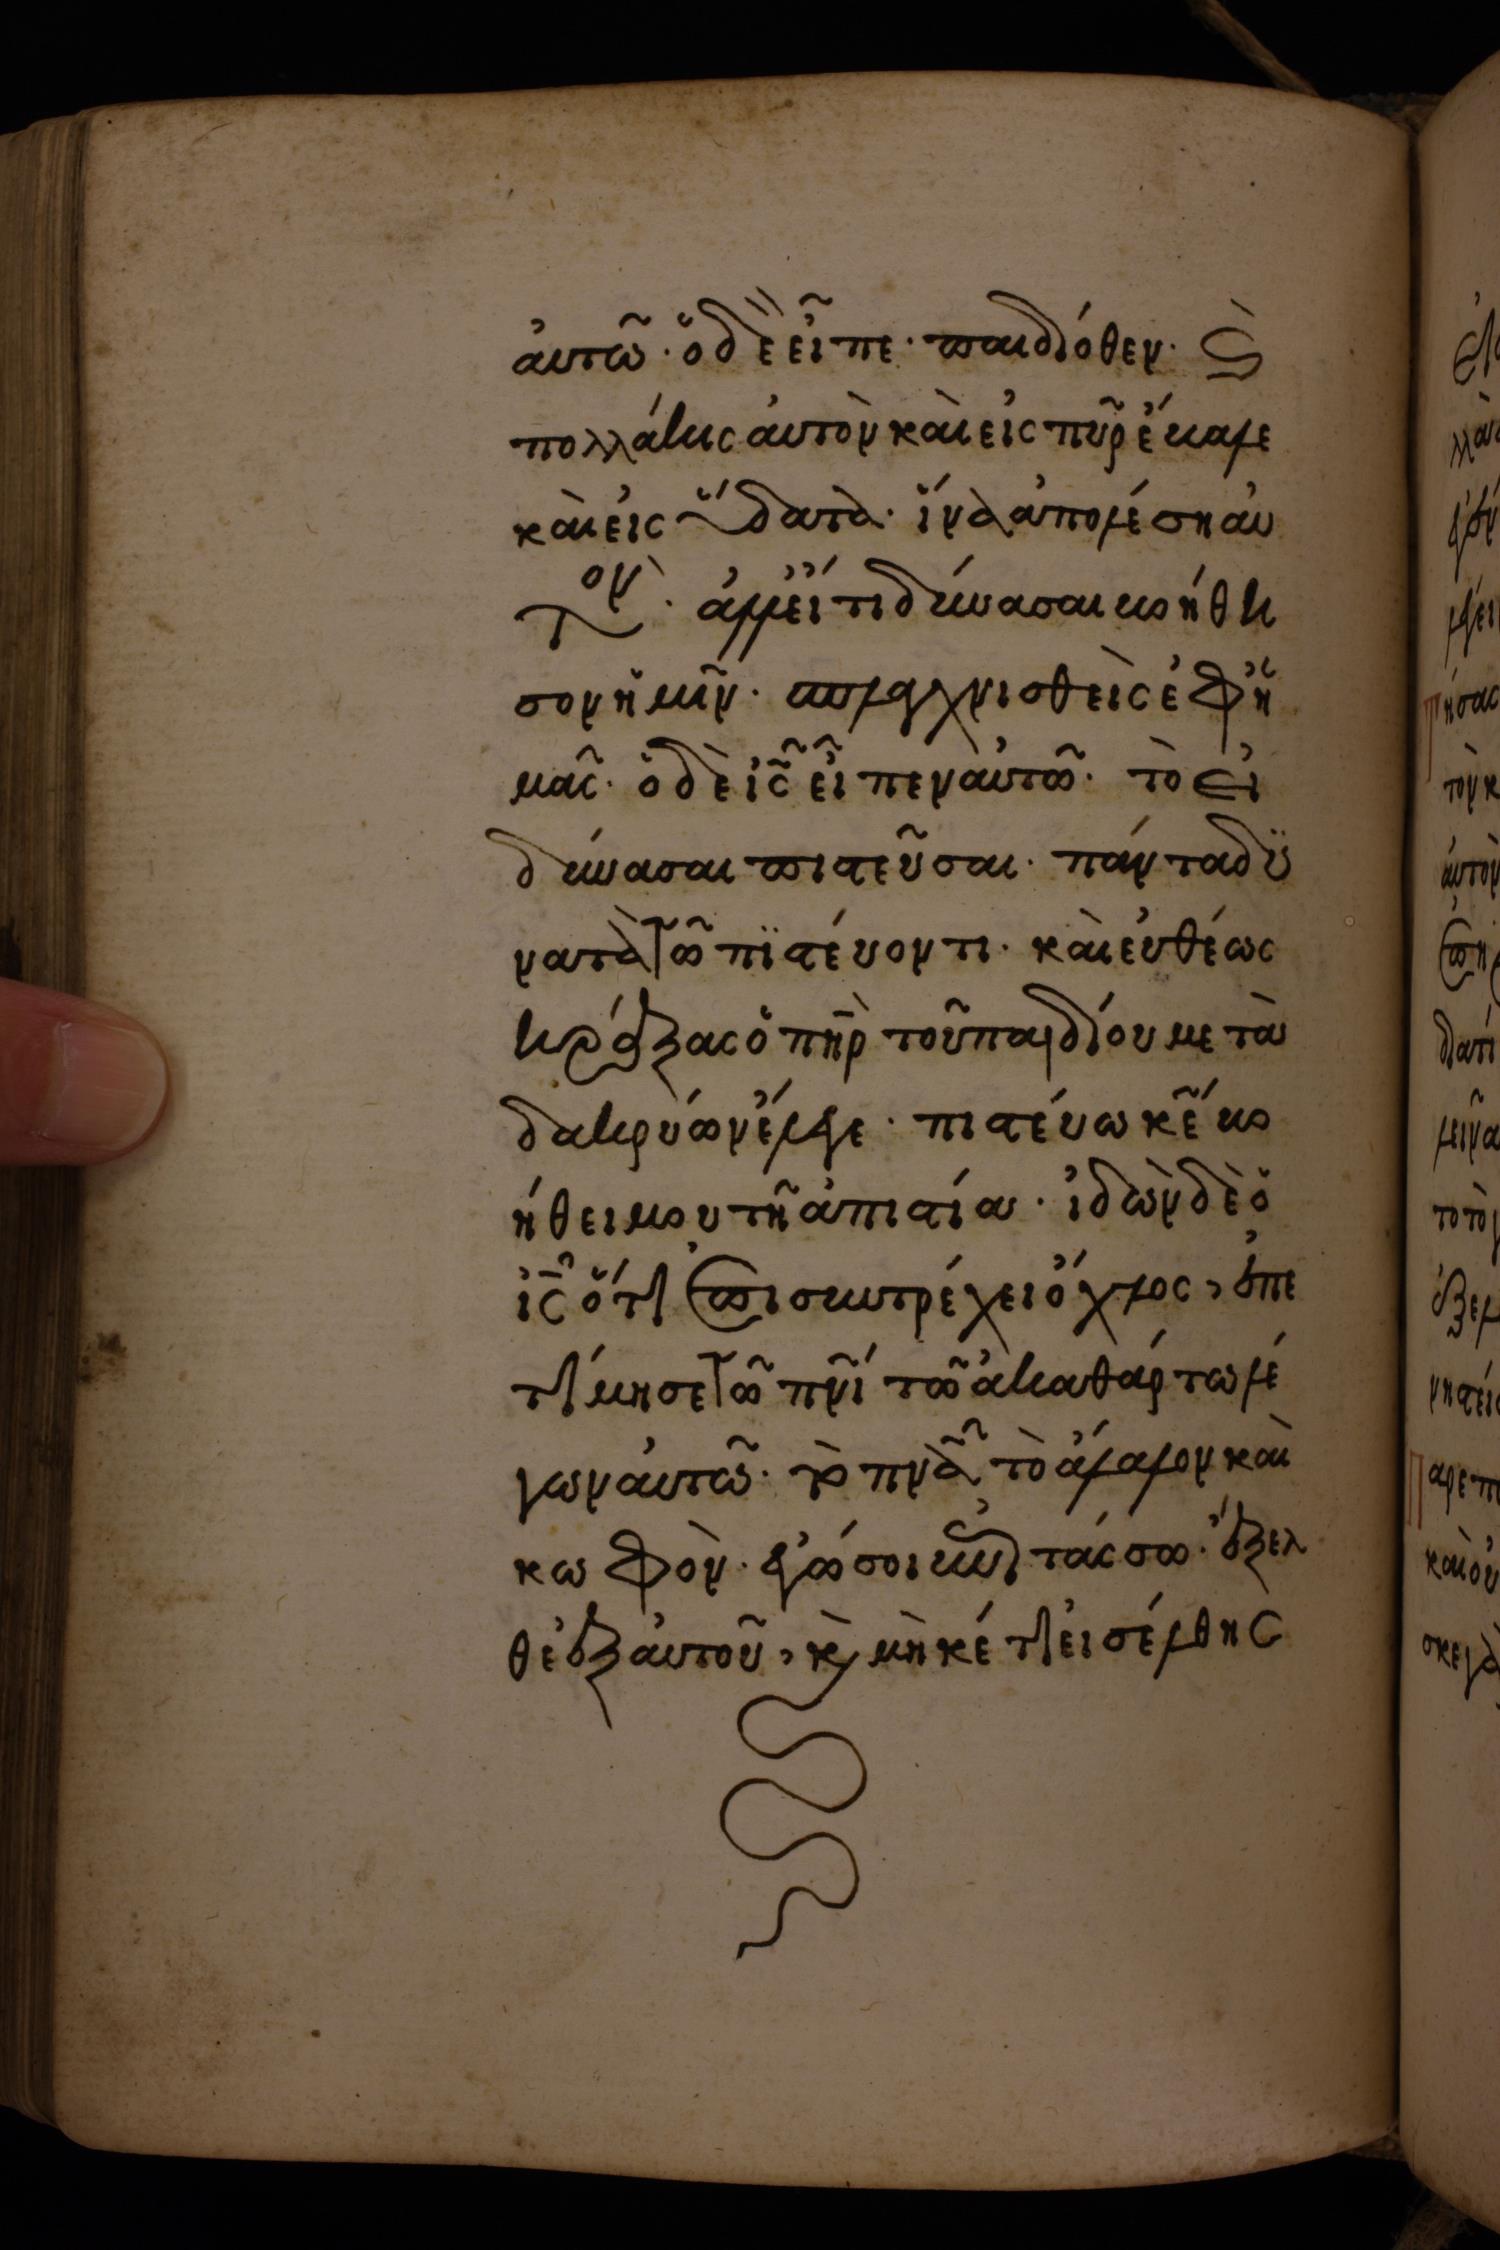 ἀυτῶ· ὁ δὲ εἶπε· παιδιόθεν· Ϛ̀
πολλάκις ἀυτὸν καὶ εἰς πῦρ ἔκαλε
καὶ εἰς ὕδατὰ· ἵνὰ ἀπολέση ἀυ
τὸν· ἀλλ' εἴ τι δύνασαι βοήθη
σον ἡμῖν· σπλαχνισθεὶς ἐφ' ἡ
μᾶς· ὁ δὲ ἰς̃ εἶπεν ἀυτῶ· τὸ εἰ
δύνασαι πιστεῦσαι· πάντα δϋ
νατὰ τῶ πϊστέυοντι· καὶ ἐυθέως
κράξας ὁ πη̃ρ τοῦ παιδίου μετὰ
δακρύων ἔλεγε· πιστέυω κε̃ βο
ήθει μου τῆ ἀπιστία· ἰδὼν δὲ ὁ
ἰς̃ ὅτι ἐπισυντρέχει ὄχλος, ἐπε
τίμησε τῶ πνι̃ τῶ ἀκαθάρτω λέ
γων ἀυτῶ· τὸ πνα̃ τὸ ἄλαλον καὶ
κωφὸν· ἐγώ σοι ἐπιτάσσω· ἔξελ
θε ἐξ ἀυτοῦ, κ̀ μὴκέτι εἰσέλθης